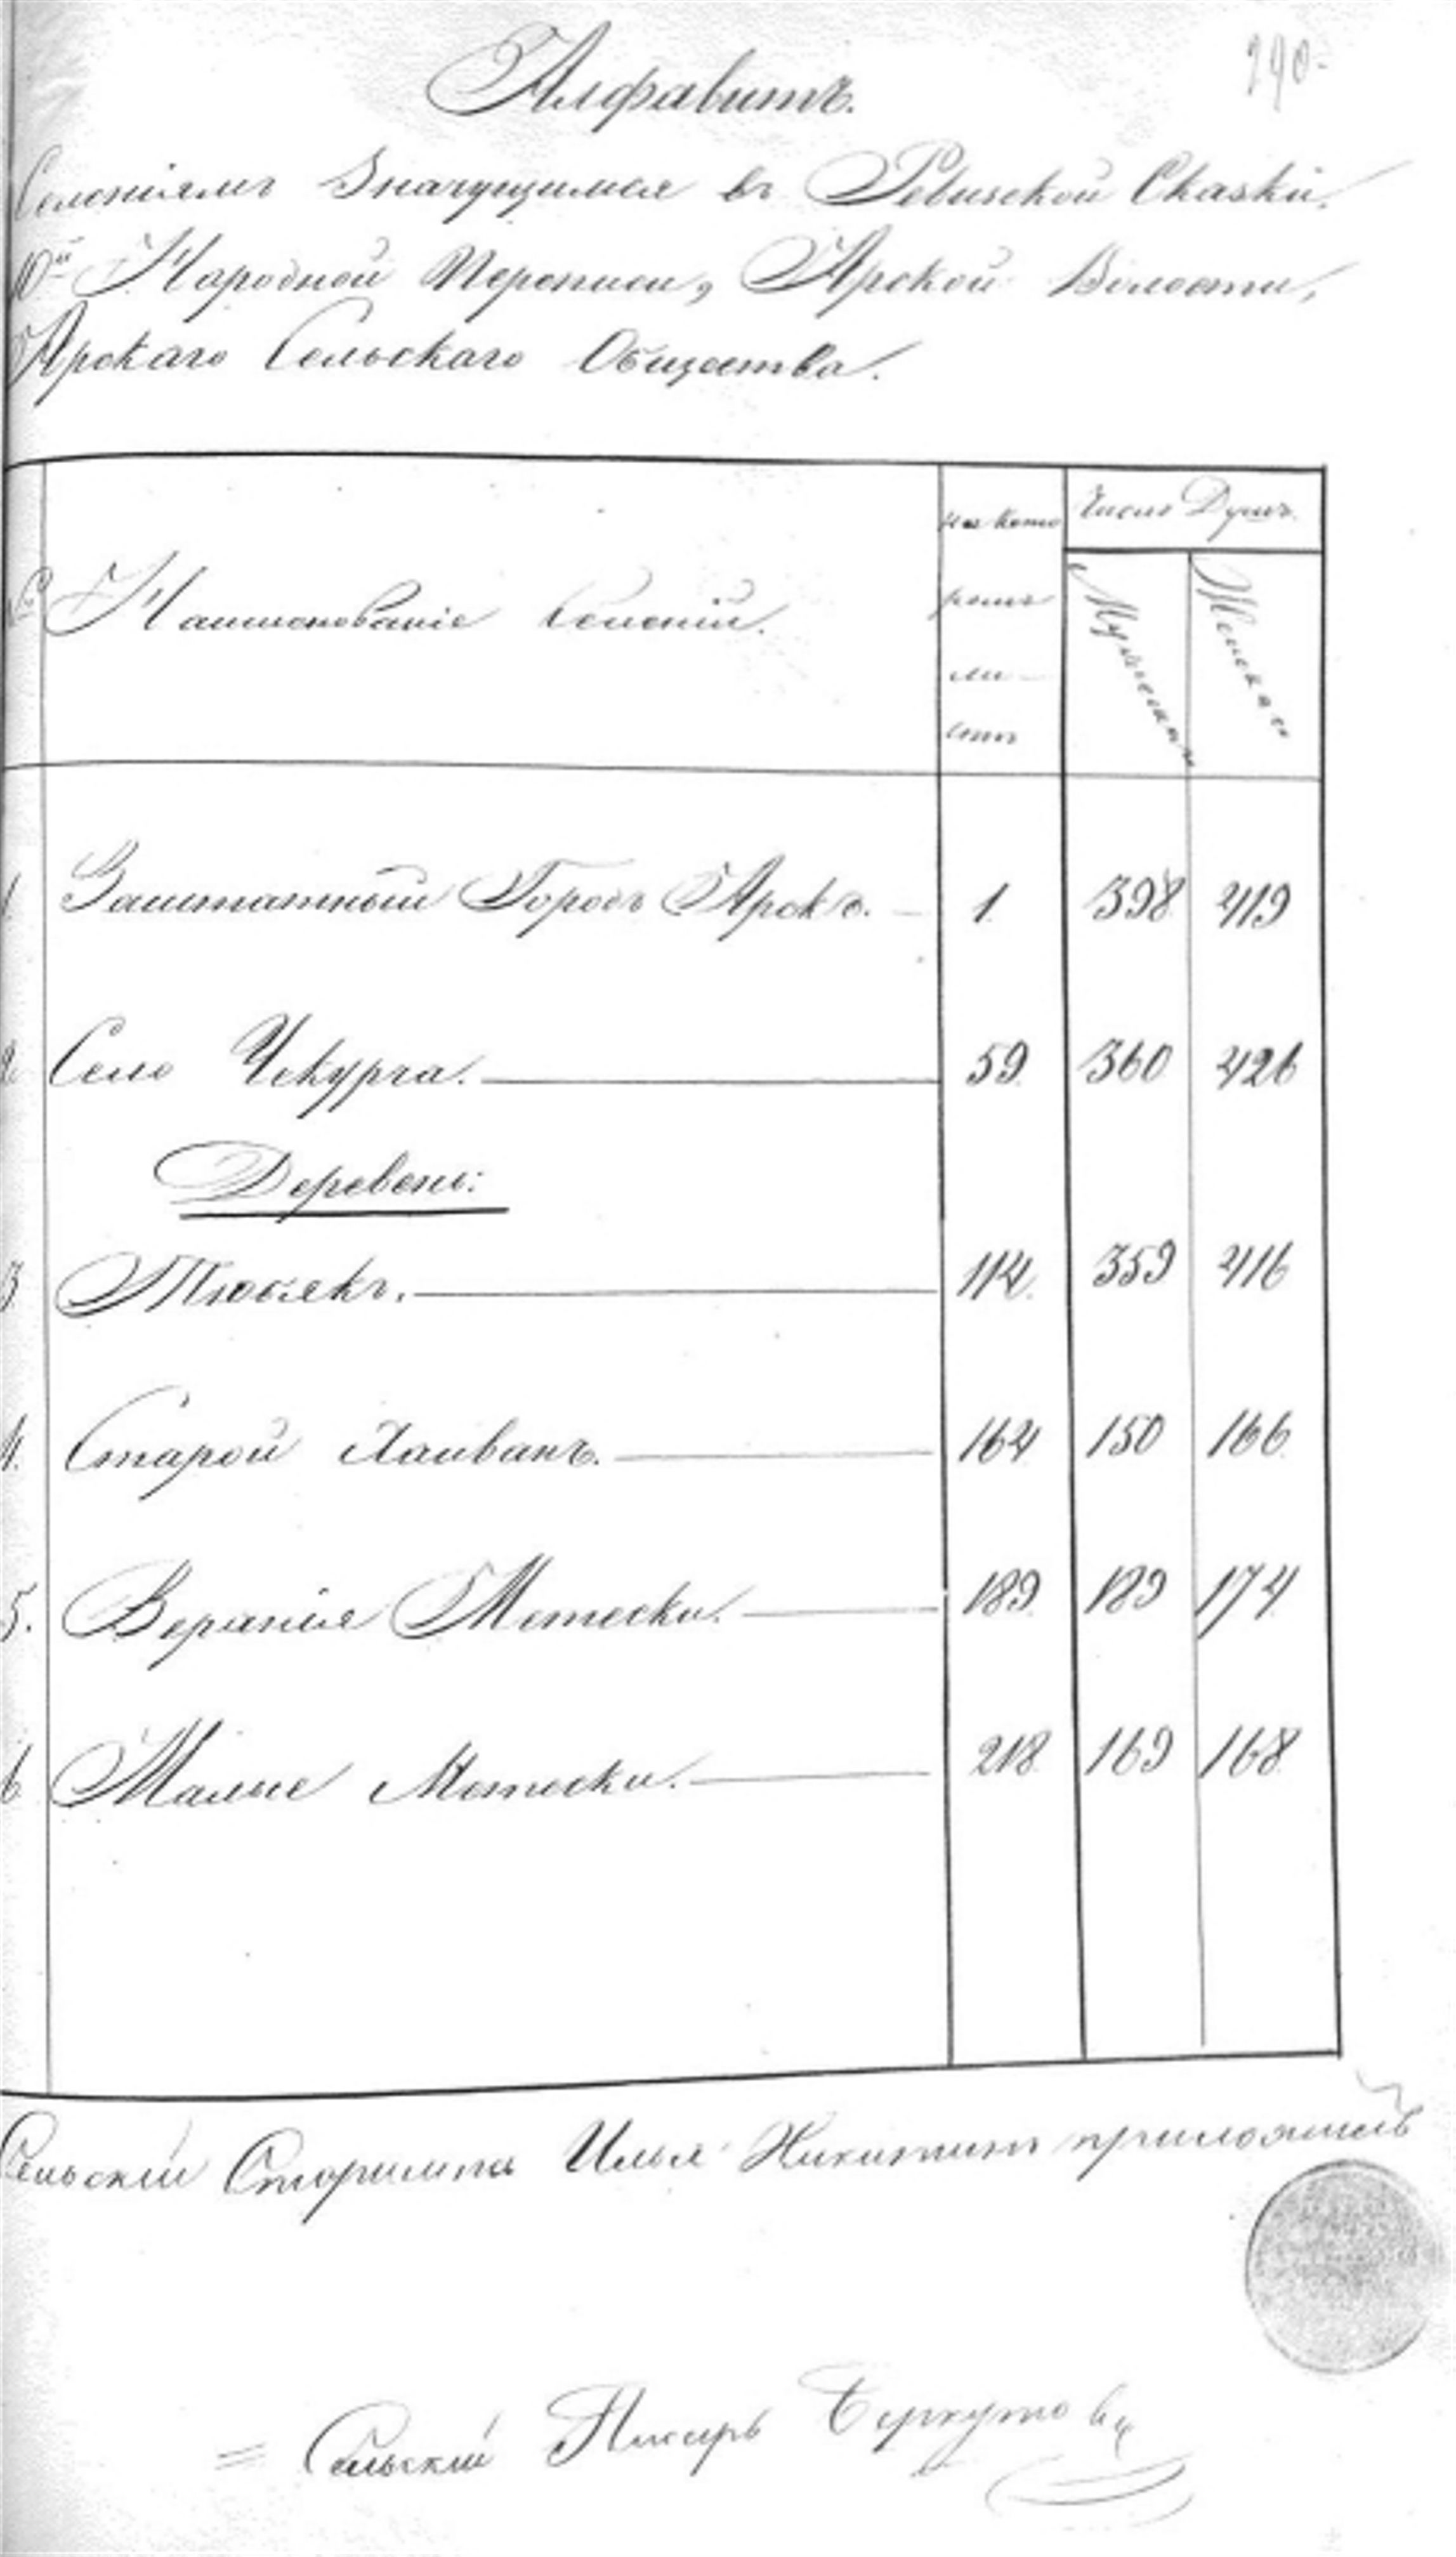 290.
Алфавитъ.
Селеніямъ Значущимся въ Ревизской Сказки,
10й Народной Переписи, Арской Волости,
Арскаго Сельскаго Общества.
№ Наименованіе Селеній. На кото Число Душъ.
ромъ Мужескаго Женскаго
ли-
стѣ
1 Заштатный Городъ Арскъ. 1. 398 419
2. Село Чекурча. 59 360 426
Деревень:
3. Тюбякъ. 114. 359 416
4. Старой Аиванъ. 164 150 166
5. Верхнія Метески. 189. 189 174
6 Малые Метески. 218. 169 168
Сельскій Старшина Илья Никитинъ приложилъ
Сельскій Писарь